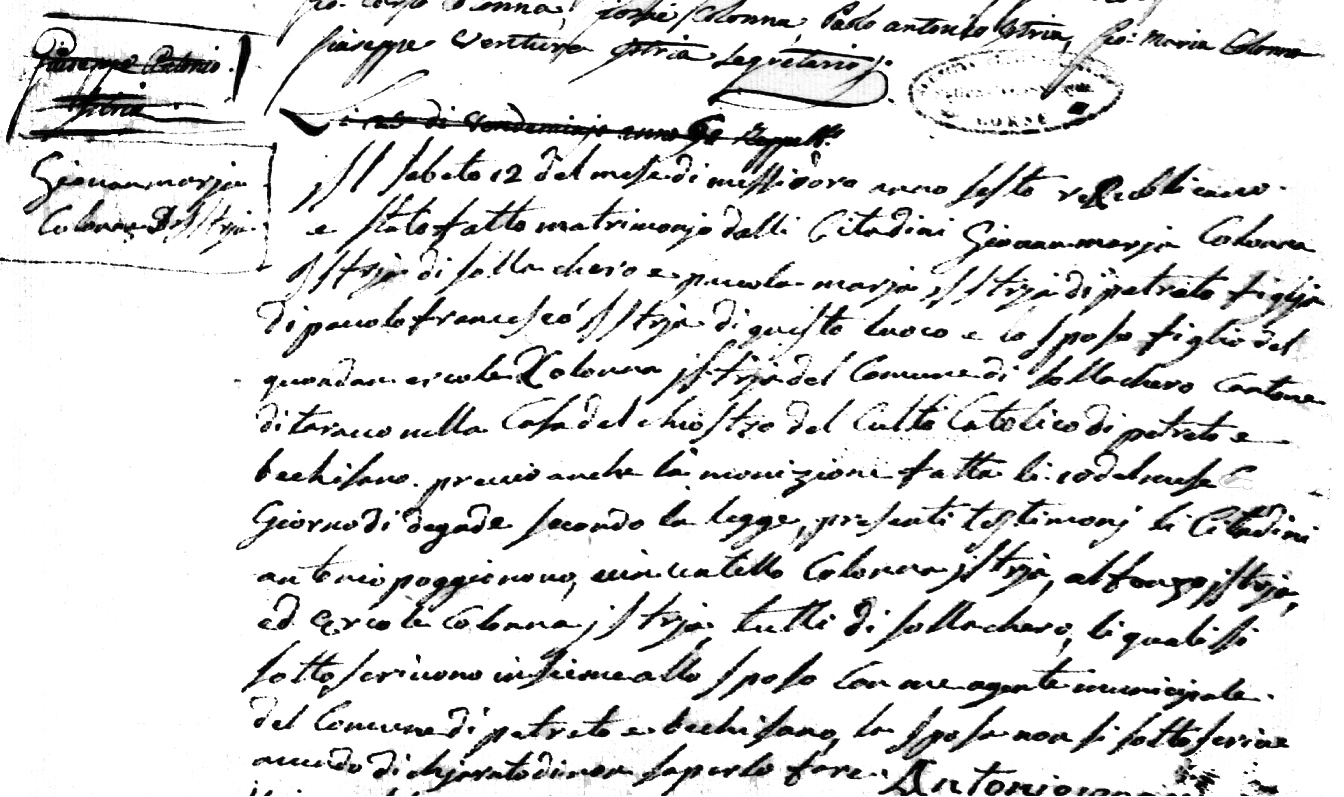 Gio: Colonna, Paolo antonio Istria, Gio: Maria Colonna
Giuseppe Ventura Istria Segretario
Giuseppe Antonio
Istria
Li di Vendeminjo anno
Giovan marja
Colonna D'isstrja
Il sabeto 12 del mese di messidoro anno sesto republicano
e stato fatto matrimonjo dalli Citadini Giovan marja Colonna
isstrja di sollacharo e pauola marja isstrja di petreto figlja
di pauolo francesco isstrja di questo luoco e lo sposo figlio del
quondan ercole Colonna isstrja del Comune di sollacharo Cantone
di taravo nella Casa del chiostro del Culto Catolico di petreto e
bechisano. previo anche la monizione fatta li 10 del mese
Giorno di degade secondo la legge, presenti testimonj li Citadini
antonio poggionovo, vincentello Colonna istrja, alfonzo istrja,
ed Ercole Colonna istrja, tutti di sollacharo, li quali si
sotto scrivono insieme allo sposo con me agente municipale
del Comune di petreto e bechisano, la sposa non si sotto scrive
avendo dichjarato di non saperlo fare.